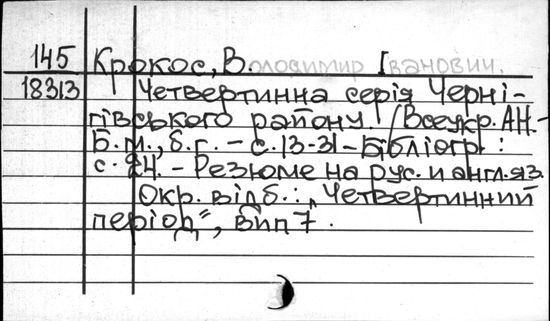 145 Крокос, В.олодимир Іванович.
18313 Четвертинна серія Черні-
гівського району /Всеукр. АН.-
Б.м., б.г. – с. 13-31-Бібліогр.:
с. 24. – Резюме на рус. и англ.яз.
Окр. відб.: „Четвертинний
період", вип 7.